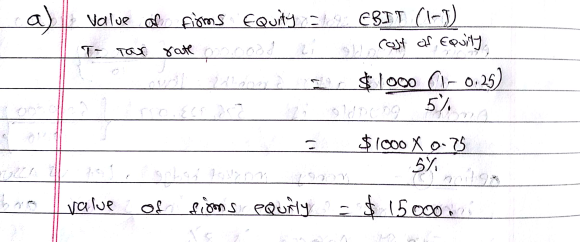 a) Value of firms Equity = EBIT (1-T)
cost of Equity
T- Tax rate
= $1000 (1- 0.25)
5%
= $1000 X 0.75
5%
value of firms equity = $ 15000.